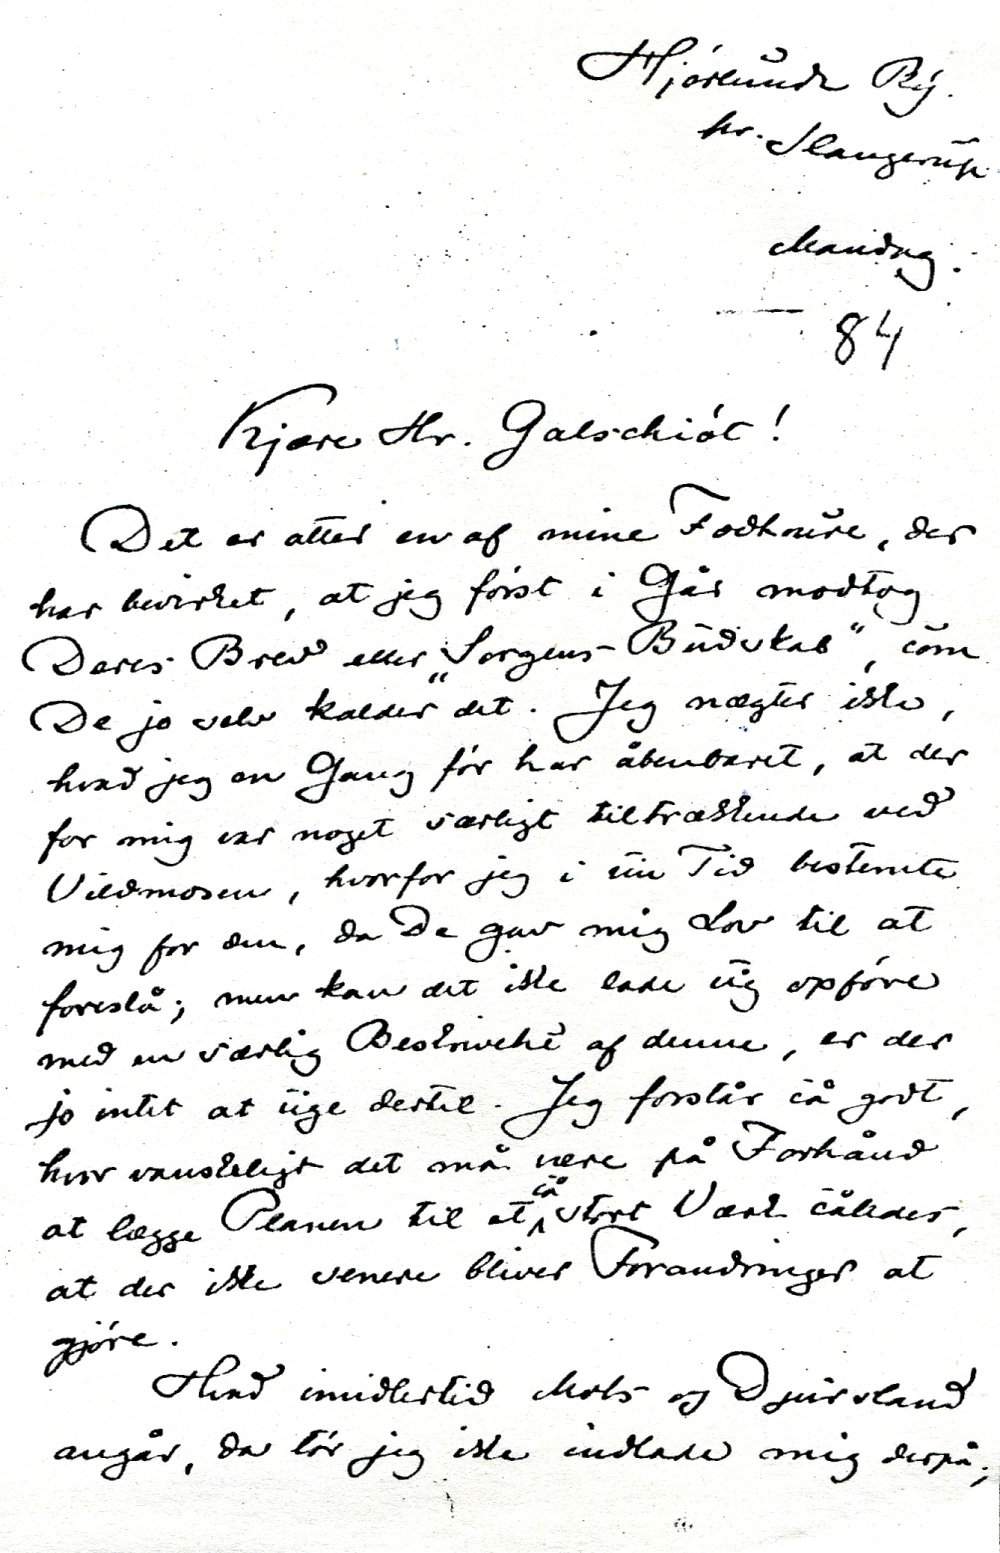 Hjørlunde By.
pr. Slangerup
Mandag.
84
Kjære Hr. Galschiót!
Det er atter en af mine Fodture, der
har bevirket, at jeg først i Går modtog
Deres Brev eller „Sorgens-Budskab“, som
De jo selv kalder det. Jeg nægter ikke,
hvad jeg en Gang før har åbenbaret, at der
for mig var noget særligt tiltrækkende ved
Vildmosen, hvorfor jeg i sin Tid bestemte
mig for den, da De gav mig Lov til at
foreslå; men kan det ikke lade sig opføre
med en særlig Beskrivelse af denne, er der
jo intet at sige dertil. Jeg forstår så godt,
hvor vanskeligt det må være på Forhånd
at lægge Planen til et så stort Værk således,
at der ikke senere bliver Forandringer at
gjøre.
Hvad imidlertid Mols og Djursland
angår, da tør jeg ikke indlade mig derpå;